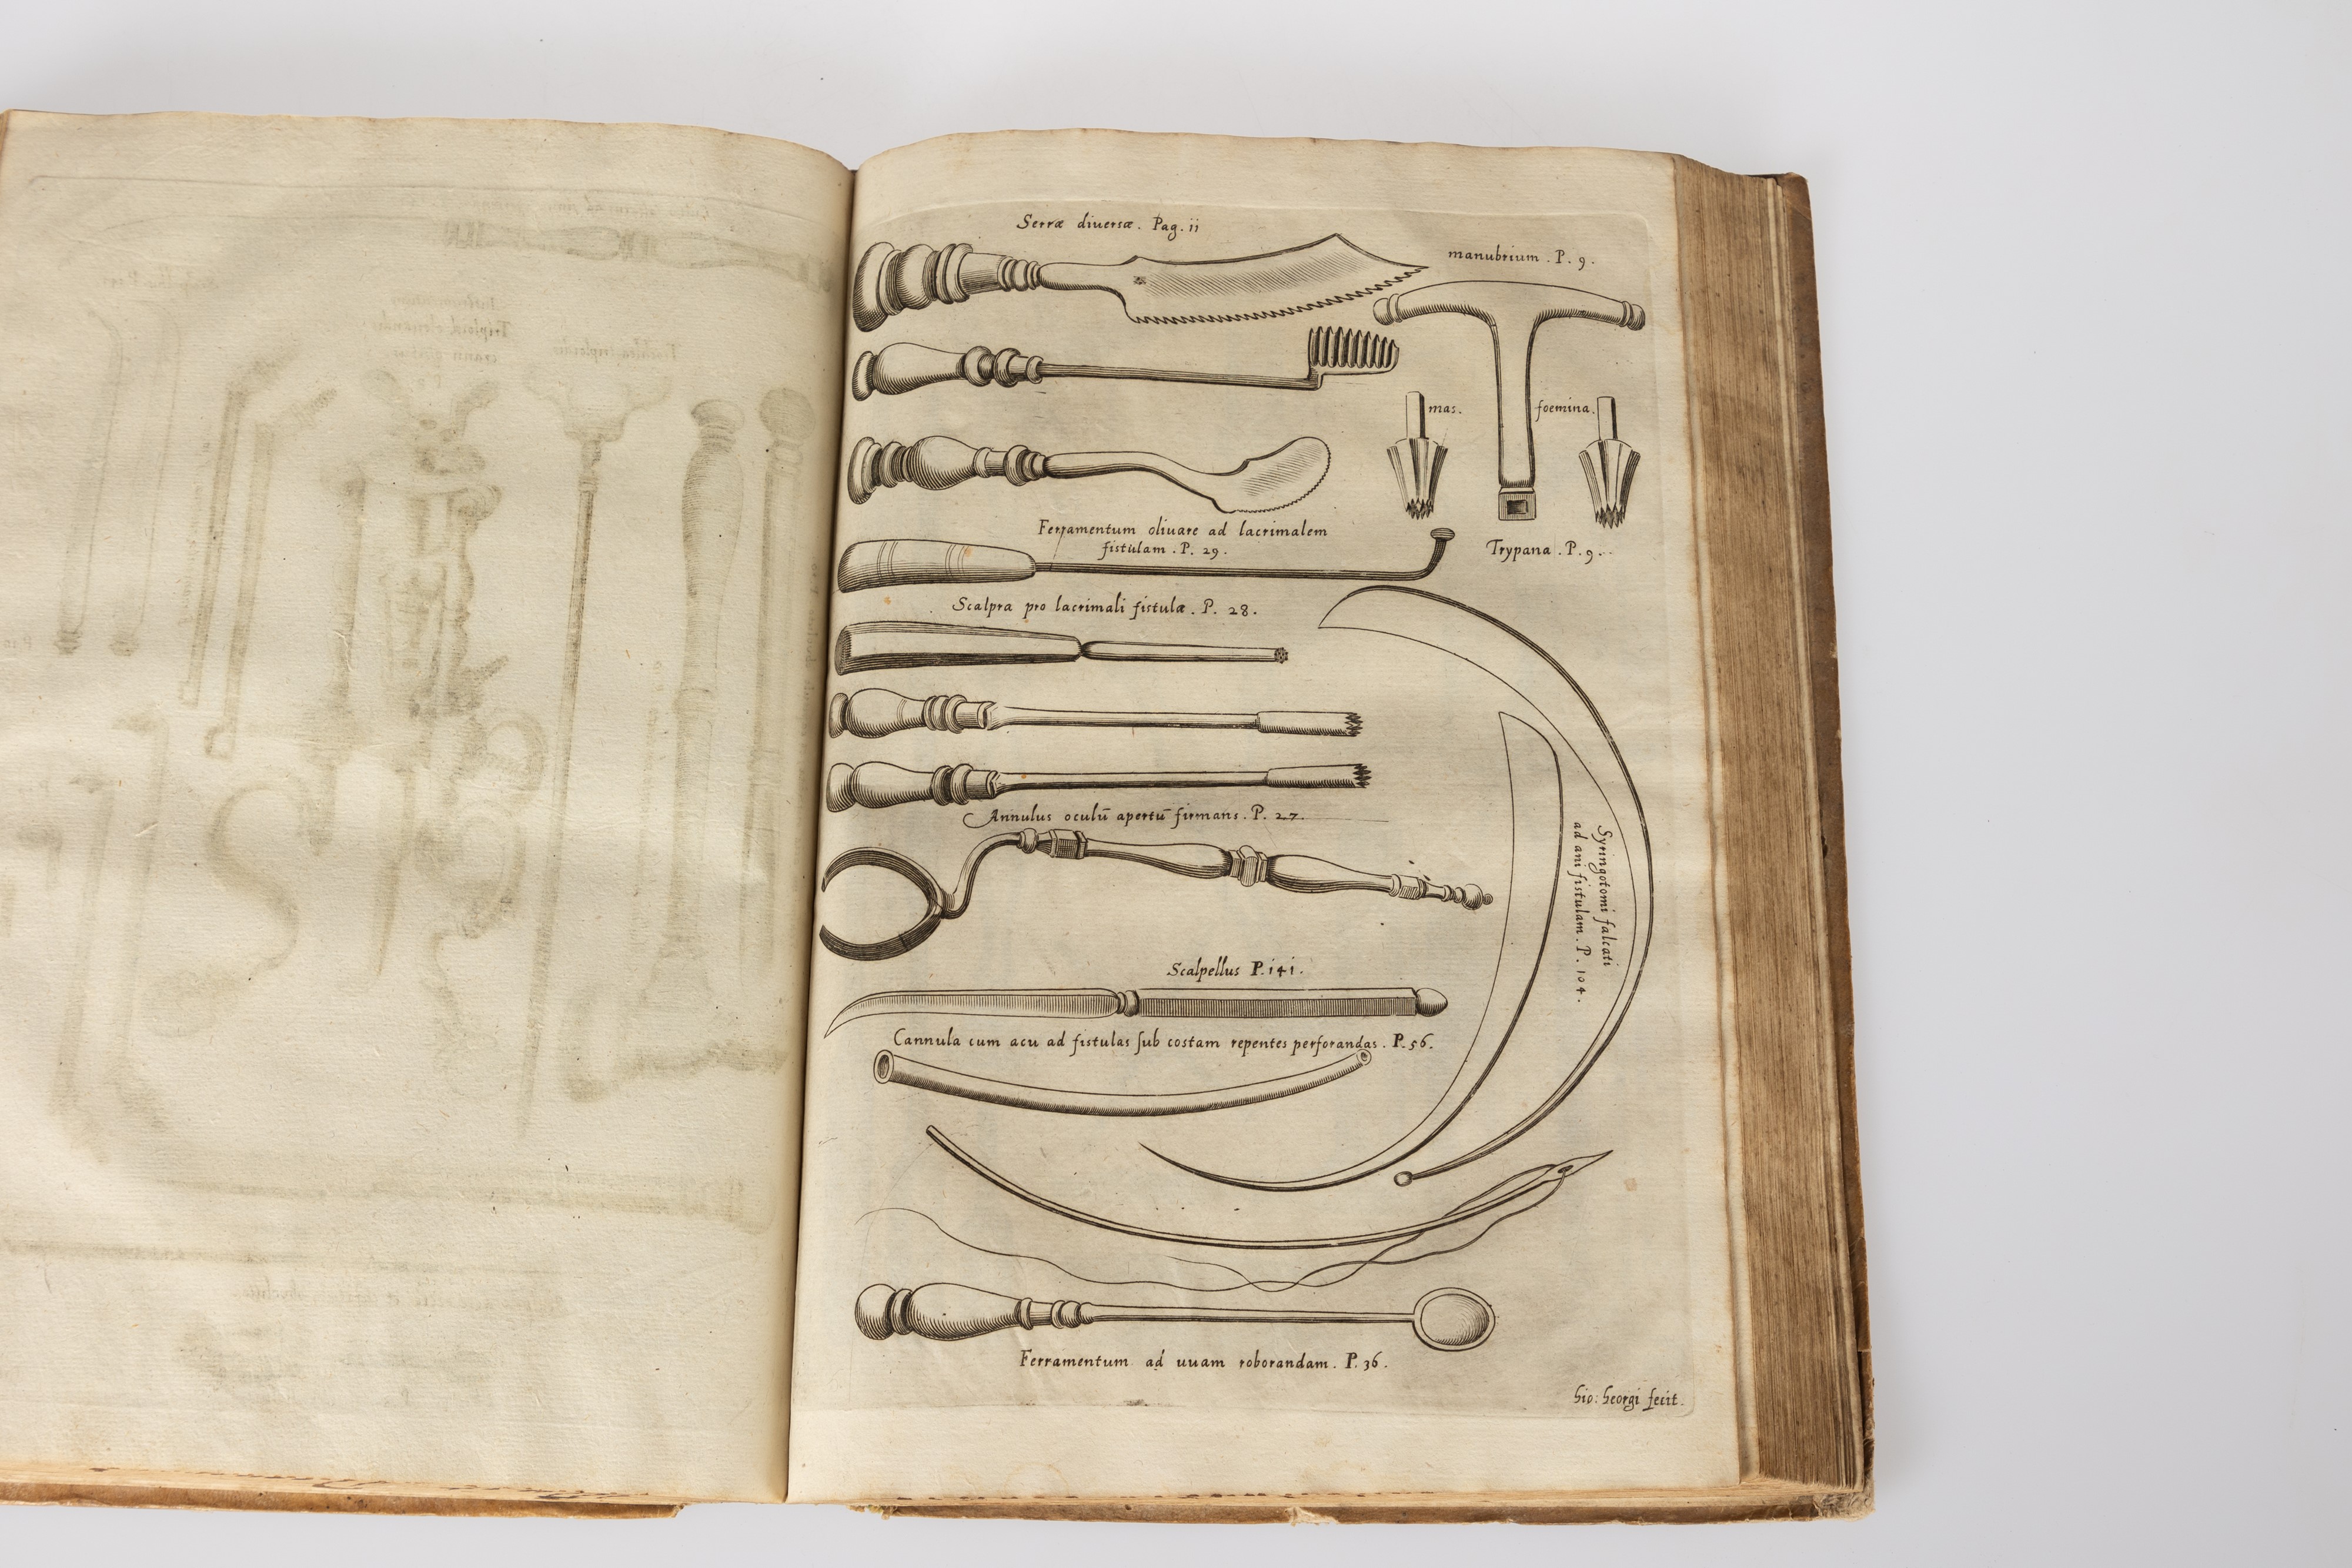 Serræ diuersæ. Pag. ii
manubrium. P. 9.
mas.
foemina.
Trypana. P. 9.
Ferramentum oliuare ad lacrimalem
fistulam. P. 29.
Scalpra pro lacrimali fistulæ. P. 28.
Annulus oculū apertū firmans. P. 27.
Syringotomi falcati
ad ani fistulam. P. 104.
Scalpellus P. 141.
Cannula cum acu ad fistulas sub costam repentes perforandas. P. 56.
Ferramentum ad uuam roborandam. P. 36.
Gio: Georgi fecit.